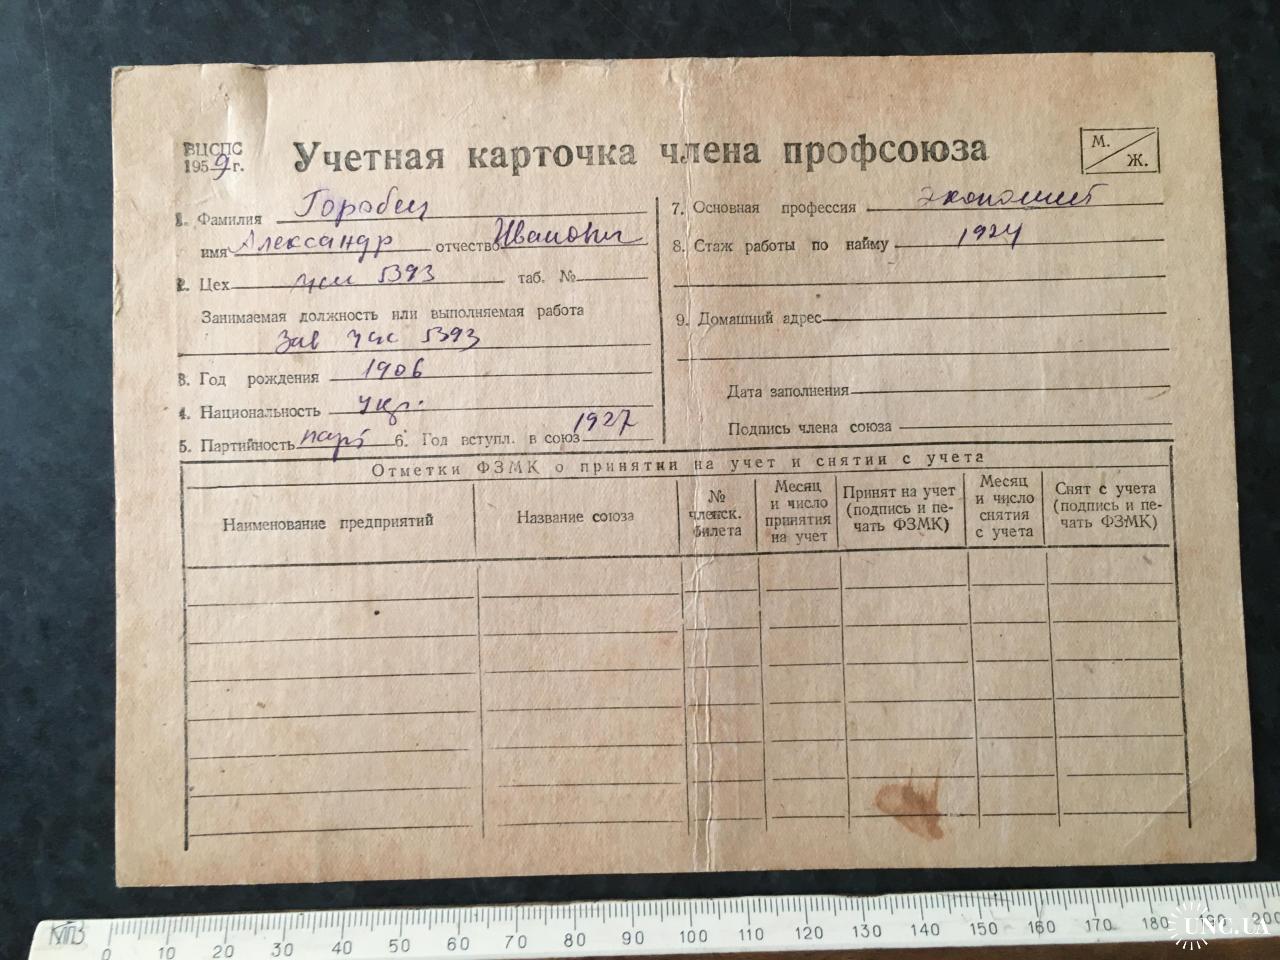 ВЦСПС
1959 г.
Учетная карточка члена профсоюза
М.
Ж.
1. Фамилия Горобец
имя Александр отчество Иванович
2. Цех 5393 таб. №
Занимаемая должность или выполняемая работа
Зав 5393
3. Год рождения 1906
4. Национальность укр.
5. Партийность парт 6. Год вступл. в союз 1927
7. Основная профессия экономист
8. Стаж работы по найму 1924
9. Домашний адрес
Дата заполнения
Подпись члена союза
Отметки ФЗМК о принятии на учет и снятии с учета
Наименование предприятий
Название союза
№
членск.
билета
Месяц
и число
принятия
на учет
Принят на учет
(подпись и пе-
чать ФЗМК)
Месяц
и число
снятия
с учета
Снят с учета
(подпись и пе-
чать ФЗМК)
0 10 20 30 40 50 60 70 80 90 100 110 120 130 140 150 160 170 180 190 200
UNC.UA